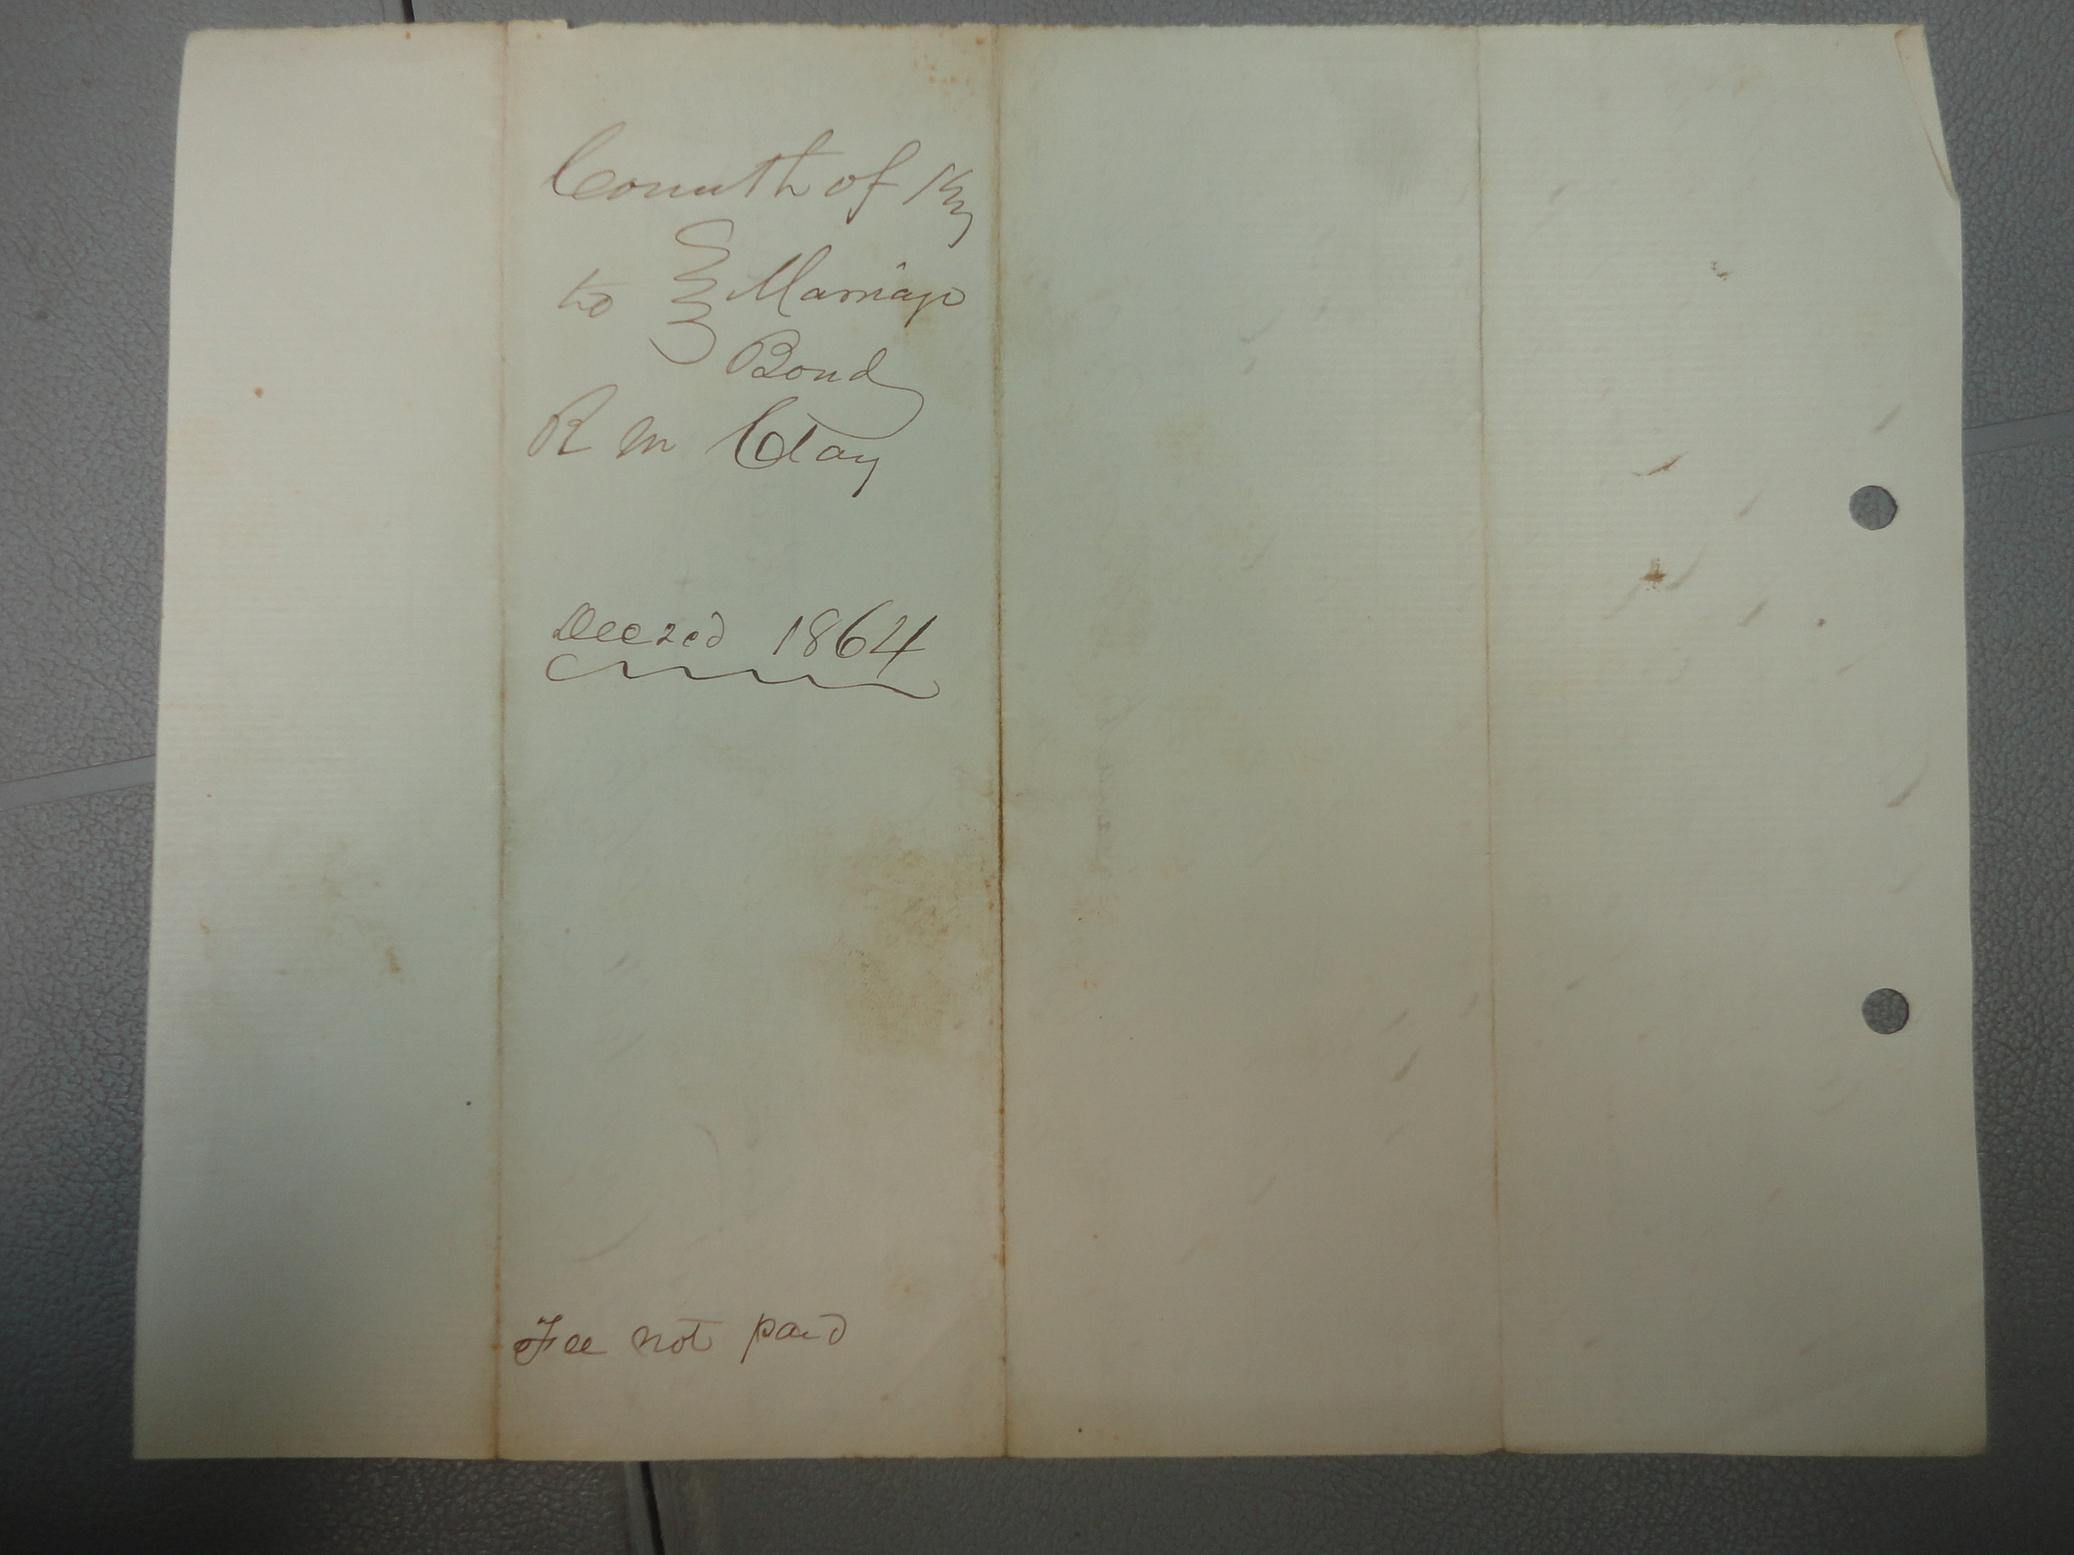 Comwth of Ky
to } Marriage
Bond
R M Clay
Dec 22d 1864
Fee not paid